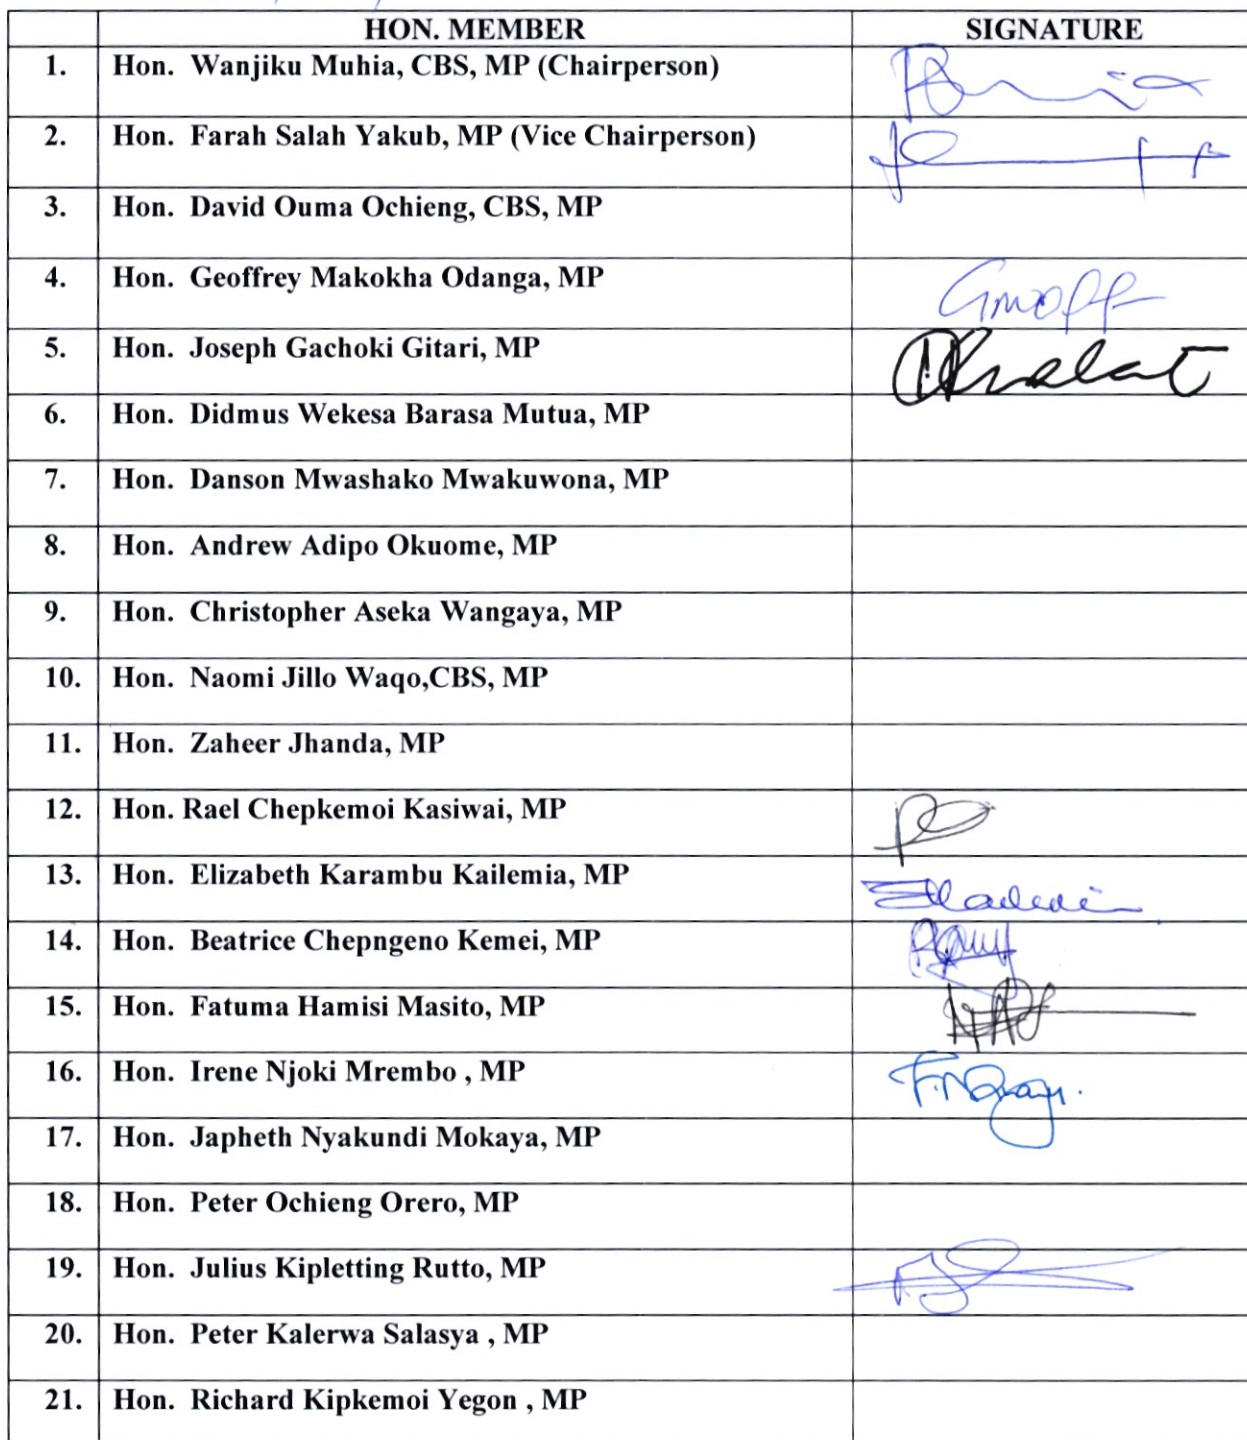 HON. MEMBER SIGNATURE
1. Hon. Wanjiku Muhia, CBS, MP (Chairperson)
2. Hon. Farah Salah Yakub, MP (Vice Chairperson)
3. Hon. David Ouma Ochieng, CBS, MP
4. Hon. Geoffrey Makokha Odanga, MP
5. Hon. Joseph Gachoki Gitari, MP
6. Hon. Didmus Wekesa Barasa Mutua, MP
7. Hon. Danson Mwashako Mwakuwona, MP
8. Hon. Andrew Adipo Okuome, MP
9. Hon. Christopher Aseka Wangaya, MP
10. Hon. Naomi Jillo Waqo,CBS, MP
11. Hon. Zaheer Jhanda, MP
12. Hon. Rael Chepkemoi Kasiwai, MP
13. Hon. Elizabeth Karambu Kailemia, MP
14. Hon. Beatrice Chepngeno Kemei, MP
15. Hon. Fatuma Hamisi Masito, MP
16. Hon. Irene Njoki Mrembo , MP
17. Hon. Japheth Nyakundi Mokaya, MP
18. Hon. Peter Ochieng Orero, MP
19. Hon. Julius Kipletting Rutto, MP
20. Hon. Peter Kalerwa Salasya , MP
21. Hon. Richard Kipkemoi Yegon , MP